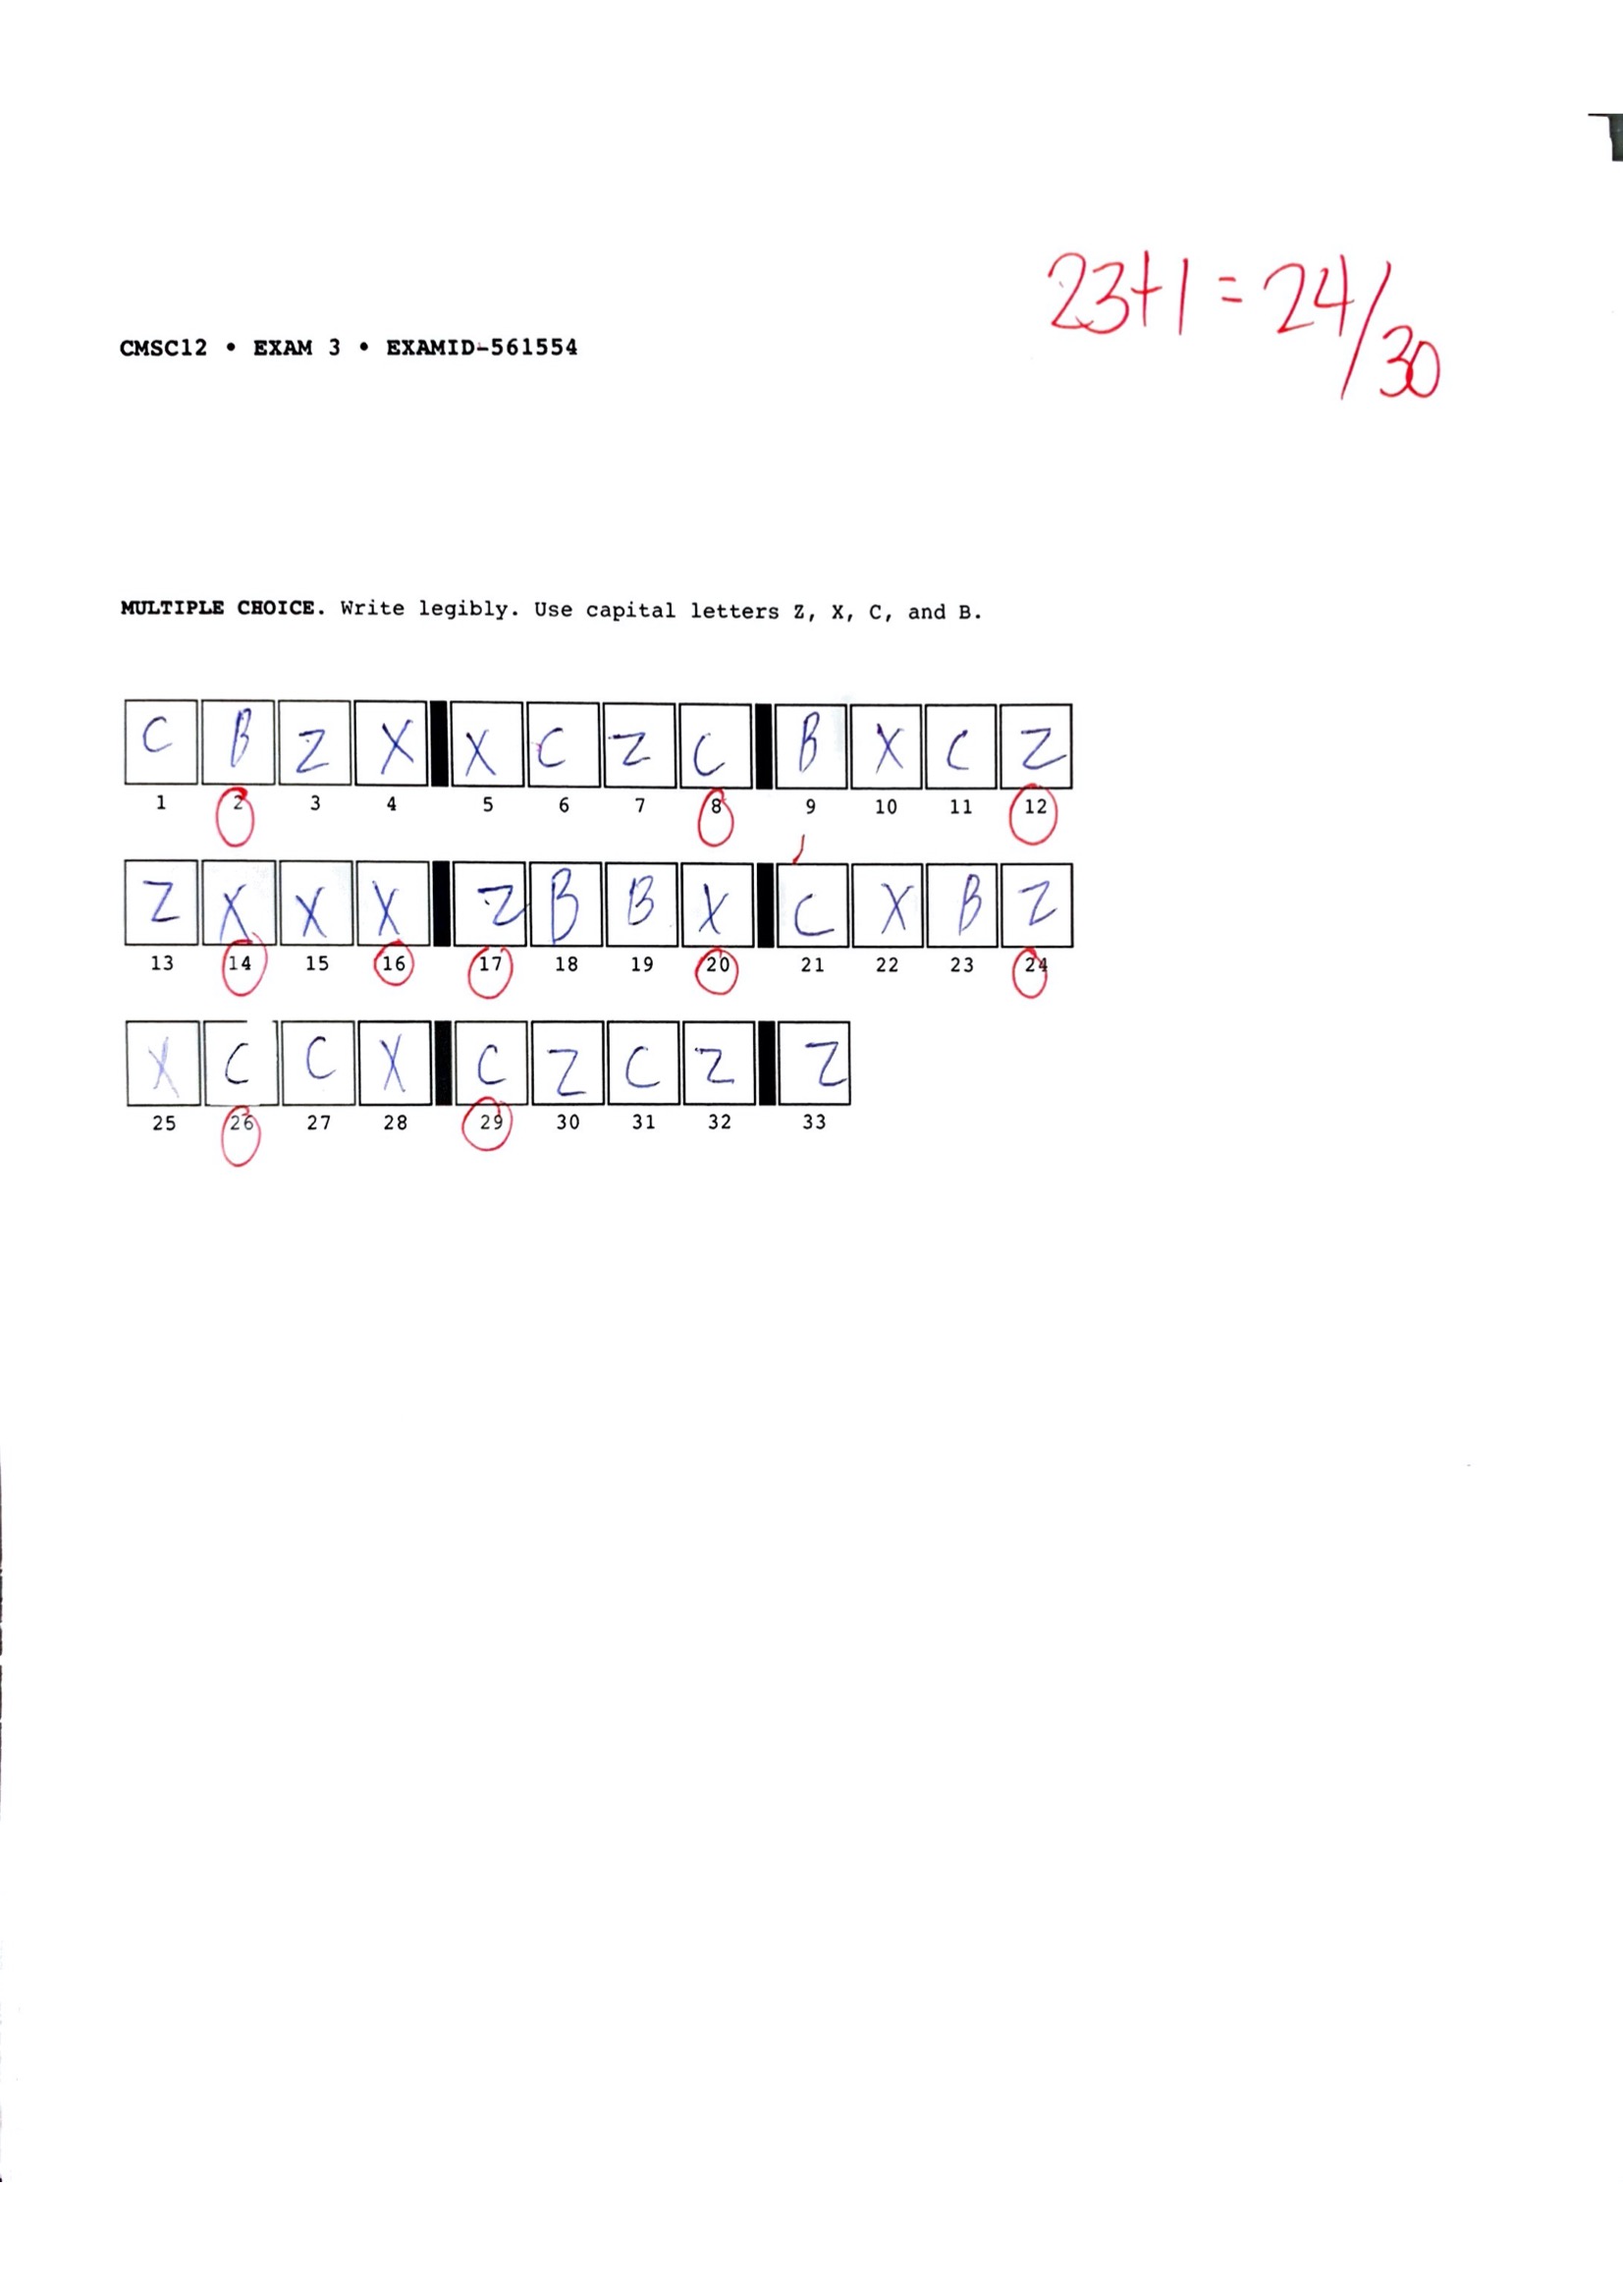 23+1 = 24/30
CMSC12 • EXAM 3 • EXAMID-561554
MULTIPLE CHOICE. Write legibly. Use capital letters Z, X, C, and B.
C B Z X X C Z C B X C Z
1 2 3 4 5 6 7 8 9 10 11 12
Z X X X Z B B X C X B Z
13 14 15 16 17 18 19 20 21 22 23 24
X C C X C Z C Z Z
25 26 27 28 29 30 31 32 33